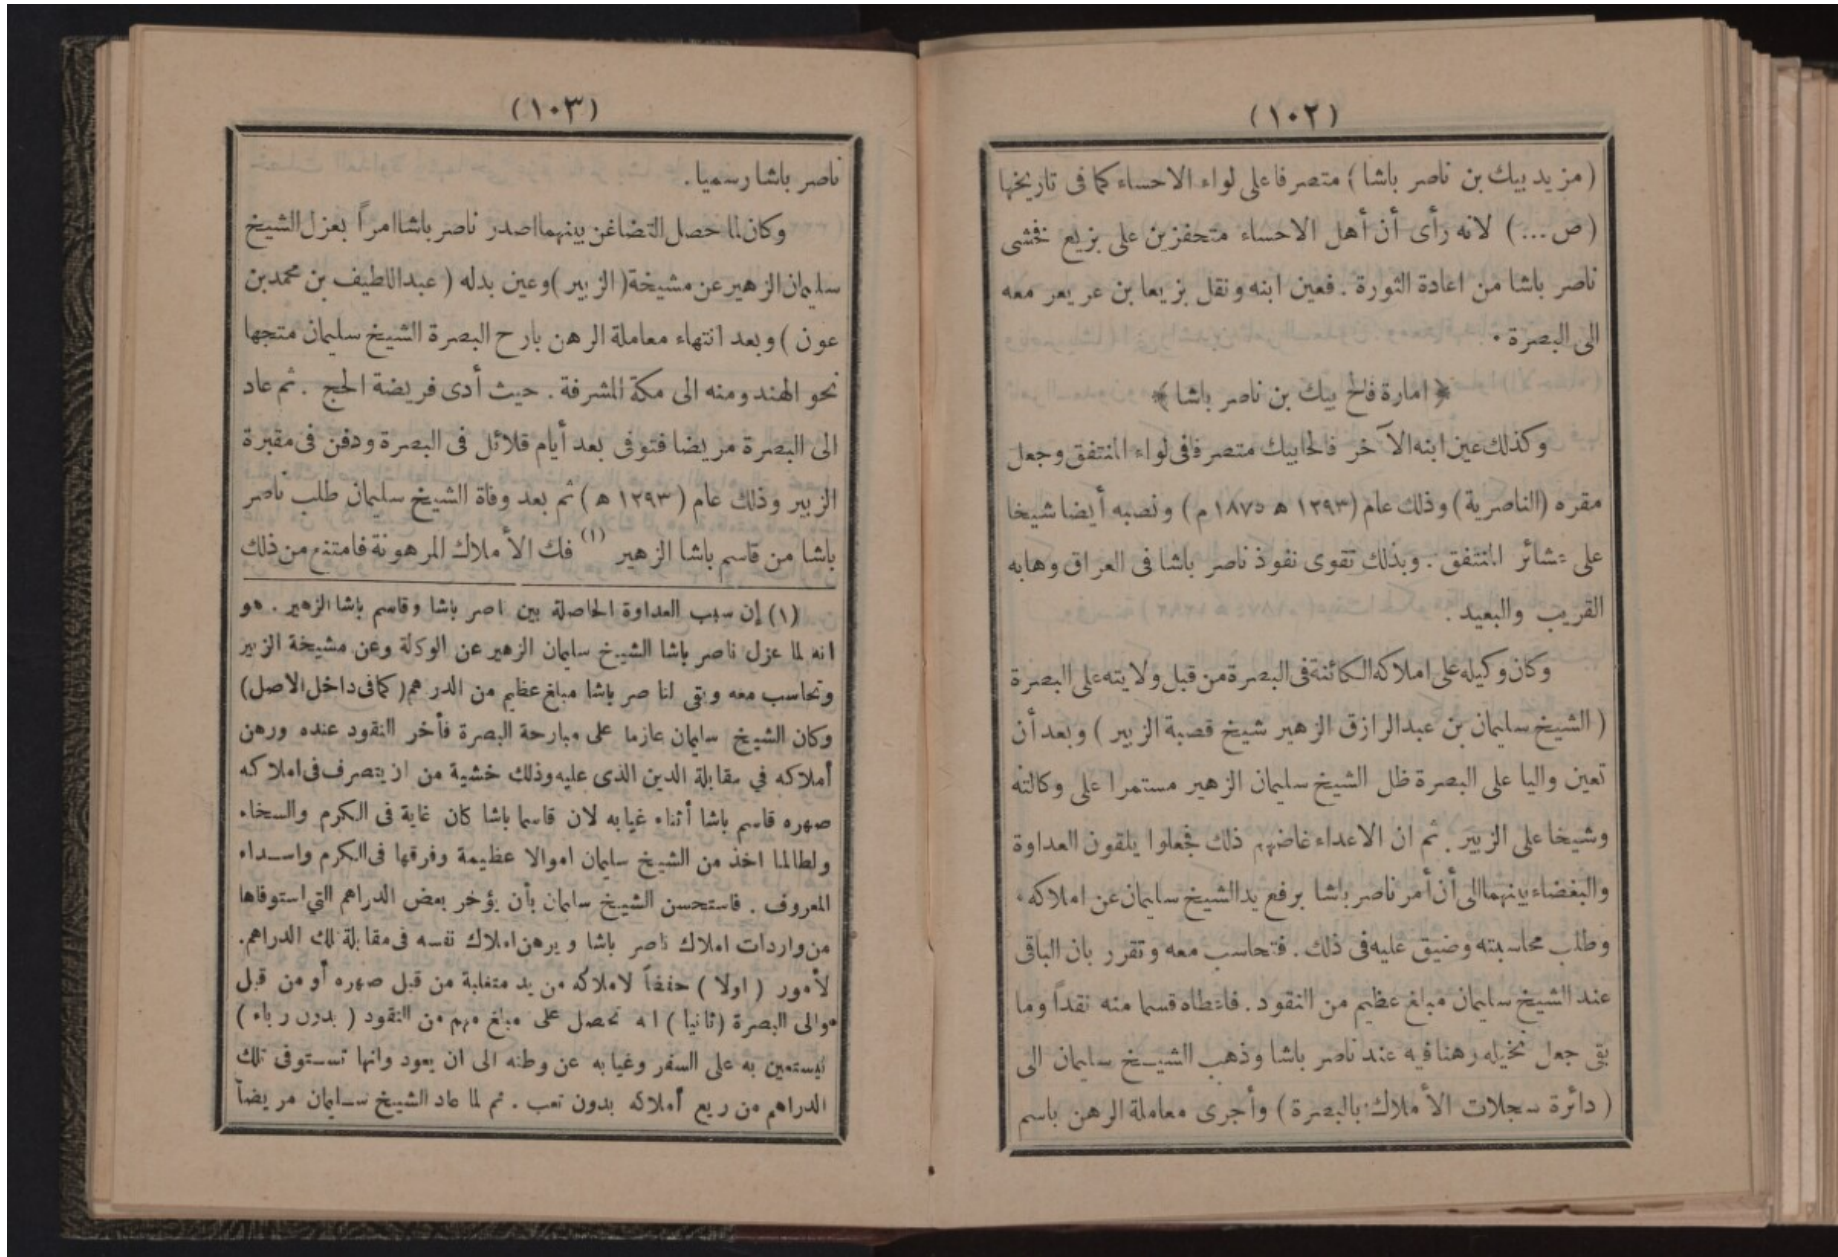 (١٠٢)
( مزيد بيك بن ناصر باشا ) متصرفا على لواء الاحساء كما فى تاريخها
( ص ... ) لانه رأى أن أهل الاحساء متحفزين على بزيع فخشى
ناصر باشا من اعادة الثورة . فعين ابنه ونقل بزيعا بن عريعر معه
الى البصرة .
﴿ امارة فالح بيك بن ناصر باشا ﴾
وكذلك عين ابنه الآخر فالحا بيك متصرفا فى لواء المنتفق وجعل
مقره (الناصرية) وذلك عام (١٢٩٣ ه ١٨٧٥ م) ونصبه أيضا شيخا
على عشائر المنتفق . وبذلك تقوى نفوذ ناصر باشا فى العراق وهابه
القريب والبعيد .
وكان وكيله على املاكه الكائنة فى البصرة من قبل ولايته على البصرة
( الشيخ سليمان بن عبدالرازق الزهير شيخ قصبة الزبير ) وبعد أن
تعين واليا على البصرة ظل الشيخ سليمان الزهير مستمرا على وكالته
وشيخا على الزبير . ثم ان الاعداء غاضهم ذلك فجعلوا يلقون العداوة
والبغضاء بينهما الى أن أمر ناصر باشا برفع يد الشيخ سليمان عن املاكه .
وطلب محاسبته وضيق عليه فى ذلك . فتحاسب معه وتقرر بان الباقى
عند الشيخ سليمان مبلغ عظيم من النقود . فاعطاه قسما منه نقداً وما
بقى جعل نخيله رهنا فيه عند ناصر باشا وذهب الشيخ سليمان الى
( دائرة سجلات الأملاك بالبصرة ) وأجرى معاملة الرهن باسم
(١٠٣)
ناصر باشا رسميا .
وكان لما حصل التضاغن بينهما اصدر ناصر باشا امراً بعزل الشيخ
سليمان الزهير عن مشيخة ( الزبير ) وعين بدله ( عبداللطيف بن محمد بن
عون ) وبعد انتهاء معاملة الرهن بارح البصرة الشيخ سليمان متجها
نحو الهند ومنه الى مكة المشرفة . حيث أدى فريضة الحج . ثم عاد
الى البصرة مريضا فتوفى بعد أيام قلائل فى البصرة ودفن فى مقبرة
الزبير وذلك عام ( ١٢٩٣ ه ) ثم بعد وفاة الشيخ سليمان طلب ناصر
باشا من قاسم باشا الزهير (١) فك الأملاك المرهونة فامتنع من ذلك
(١) إن سبب العداوة الحاصلة بين اصر باشا وقاسم باشا الزهير . هو
انه لما عزل ناصر باشا الشيخ سليمان الزهير عن الوكالة وعن مشيخة الزبير
وتحاسب معه وبقى لناصر باشا مبلغ عظيم من الدرهم ( كما فى داخل الاصل )
وكان الشيخ سليمان عازما على مبارحة البصرة فأخر النقود عنده ورهن
أملاكه في مقابلة الدين الذى عليه وذلك خشية من ان يتصرف فى املاكه
صهره قاسم باشا أثناء غيابه لان قاسما باشا كان غاية فى الكرم والسخاء
ولطالما اخذ من الشيخ سليمان اموالا عظيمة وفرقها فى الكرم واسداء
المعروف . فاستحسن الشيخ سليمان بأن يؤخر بعض الدراهم التي استوفاها
من واردات املاك ناصر باشا ويرهن املاك نفسه فى مقابلة تلك الدراهم .
لأمور ( اولا ) حفظاً لاملاكه من يد متغلبة من قبل صهره أو من قبل
والى البصرة ( ثانيا ) انه تحصل على مبلغ مهم من النقود ( بدون رباء )
يستعين به على السفر وغيابه عن وطنه الى ان يعود وانها تستوفى تلك
الدراهم من ريع أملاكه بدون تعب . ثم لما عاد الشيخ سليمان مريضاً